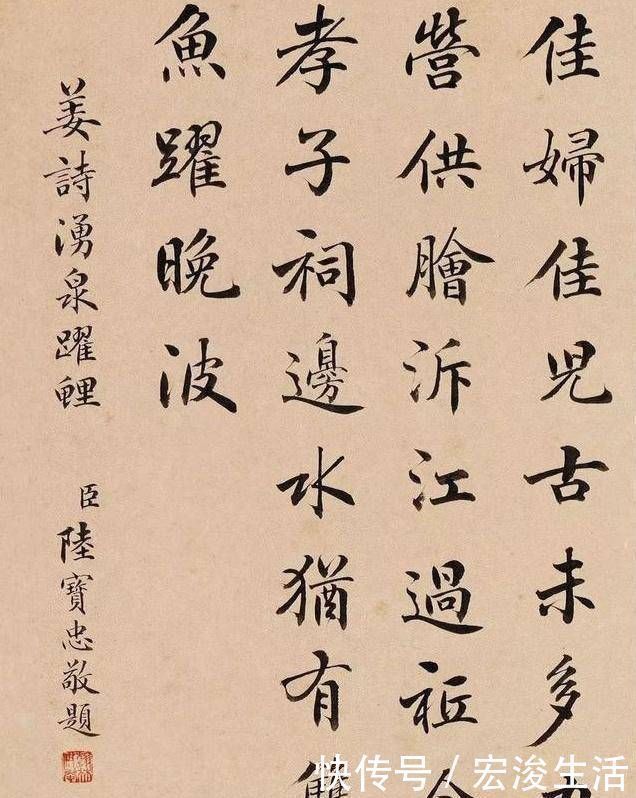 佳婦佳兒古未多
營供膾泝江過祗今
孝子祠邊水猶有雙
魚躍晚波
姜詩湧泉躍鯉
臣陸寶忠敬題
快传号 / 宏浚生活